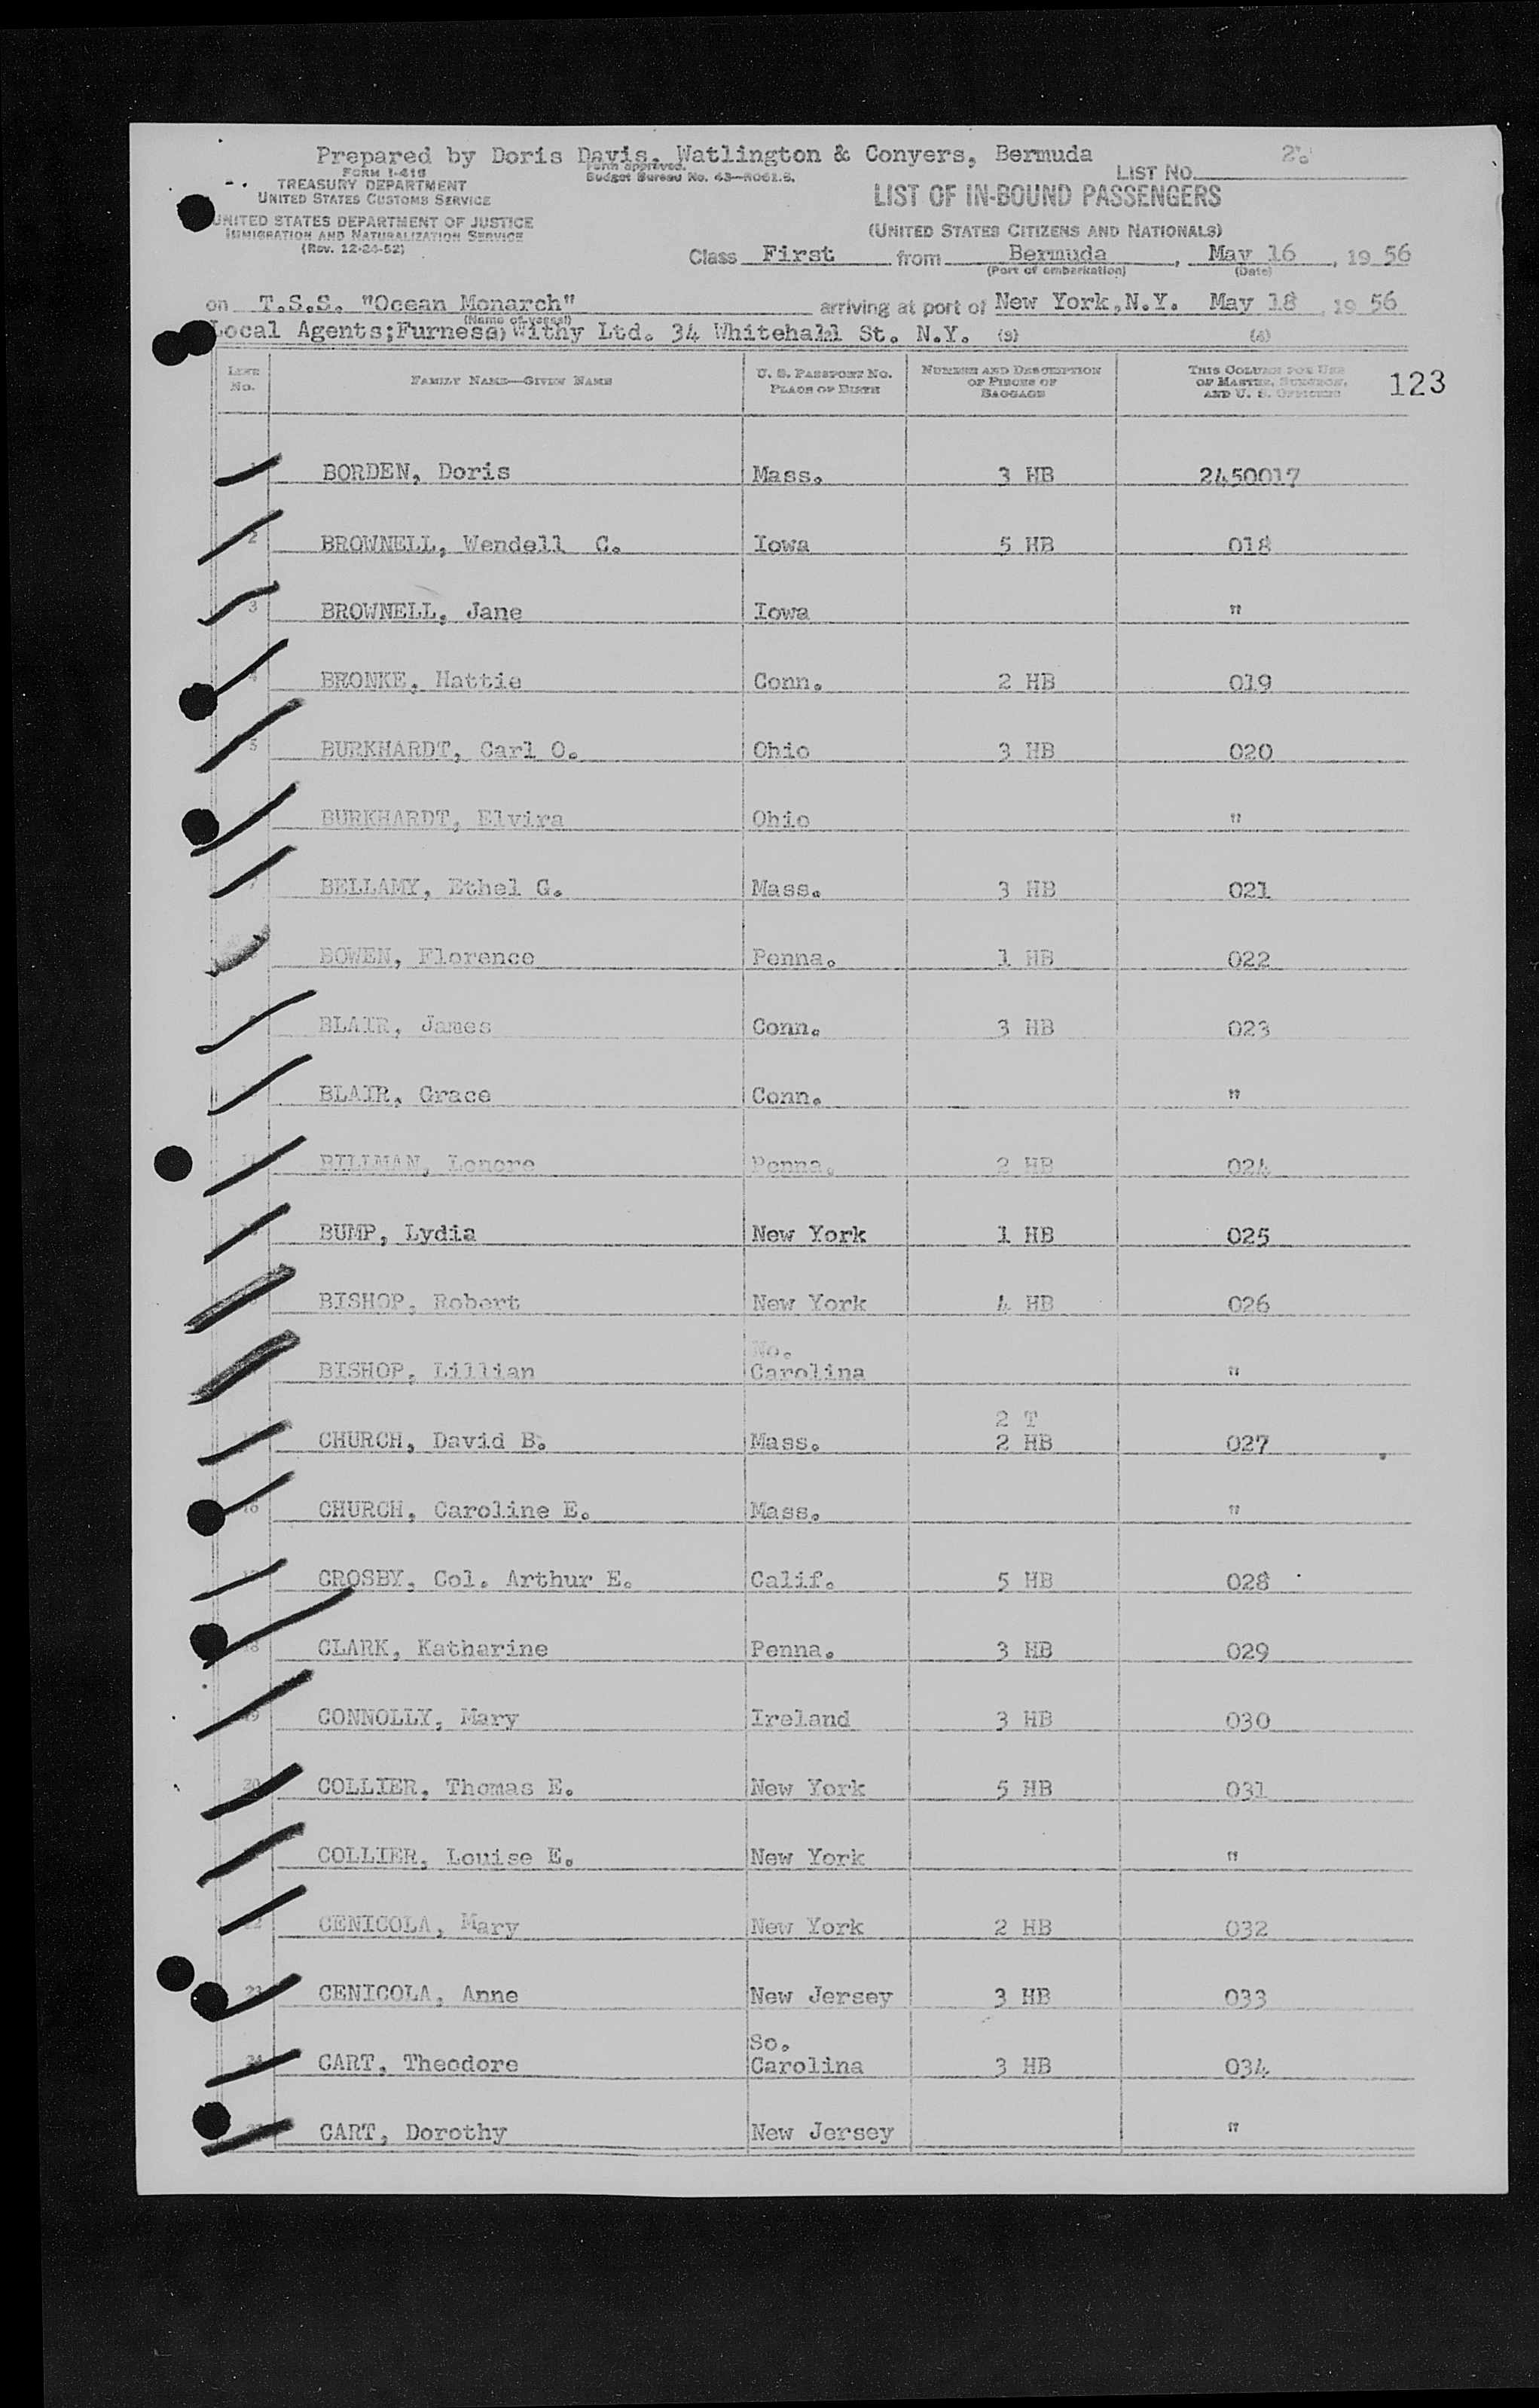 Prepared by Doris Davis, Watlington & Conyers, Bermuda
FORM I-418
Form approved.
Budget Bureau No. 43—R061.5.
LIST NO. 2.
TREASURY DEPARTMENT
UNITED STATES CUSTOMS SERVICE
LIST OF IN-BOUND PASSENGERS
UNITED STATES DEPARTMENT OF JUSTICE
IMMIGRATION AND NATURALIZATION SERVICE
(UNITED STATES CITIZENS AND NATIONALS)
(Rev. 12-24-52)
Class First from Bermuda, May 16, 1956
(Port of embarkation) (Date)
on T.S.S. "Ocean Monarch" arriving at port of New York, N.Y. May 18, 1956
(Name of vessel)
Local Agents; Furness Withy Ltd. 34 Whitehall St. N.Y. (3) (4)
LINE No. FAMILY NAME—GIVEN NAME U. S. PASSPORT NO. PLACE OF BIRTH NUMBER AND DESCRIPTION OF PIECES OF BAGGAGE THIS COLUMN FOR USE OF MASTER, SURGEON, AND U. S. OFFICERS 123
1 BORDEN, Doris Mass. 3 HB 2450017
2 BROWNELL, Wendell C. Iowa 5 HB 018
3 BROWNELL, Jane Iowa "
4 BRONKE, Hattie Conn. 2 HB 019
5 BURKHARDT, Carl O. Ohio 3 HB 020
BURKHARDT, Elvira Ohio "
7 BELLAMY, Ethel G. Mass. 3 HB 021
BOWEN, Florence Penna. 1 HB 022
BLAIR, James Conn. 3 HB 023
BLAIR, Grace Conn. "
11 BILLMAN, Lenore Penna. 2 HB 024
BUMP, Lydia New York 1 HB 025
BISHOP, Robert New York 4 HB 026
BISHOP, Lillian No. Carolina "
CHURCH, David B. Mass. 2 T 2 HB 027
16 CHURCH, Caroline E. Mass. "
17 CROSBY, Col. Arthur E. Calif. 5 HB 028
18 CLARK, Katharine Penna. 3 HB 029
19 CONNOLLY, Mary Ireland 3 HB 030
20 COLLIER, Thomas E. New York 5 HB 031
COLLIER, Louise E. New York "
22 CENICOLA, Mary New York 2 HB 032
23 CENICOLA, Anne New Jersey 3 HB 033
24 CART, Theodore So. Carolina 3 HB 034
CART, Dorothy New Jersey "